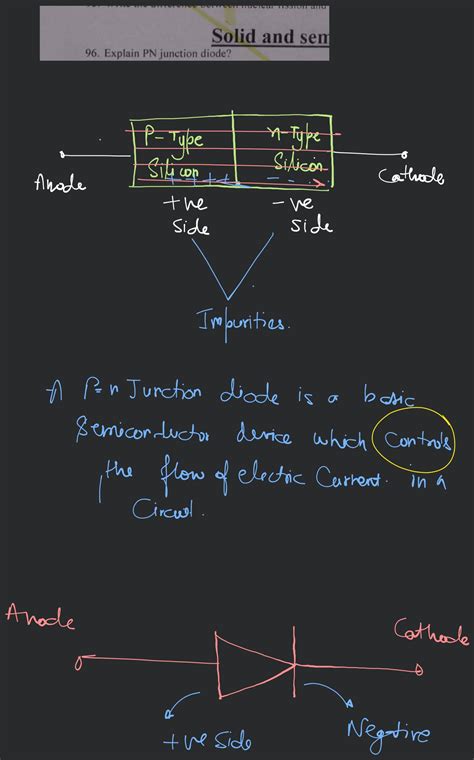 the difference between nuclear fission and
Solid and sem
96. Explain PN junction diode?
P-Type n-Type
Silicon Silicon
Anode Cathode
+ve -ve
side side
Impurities.
A P-n Junction diode is a basic
Semiconductor device which Controls
the flow of electric Current in a
Circuit.
Anode
Cathode
+ve side Negative